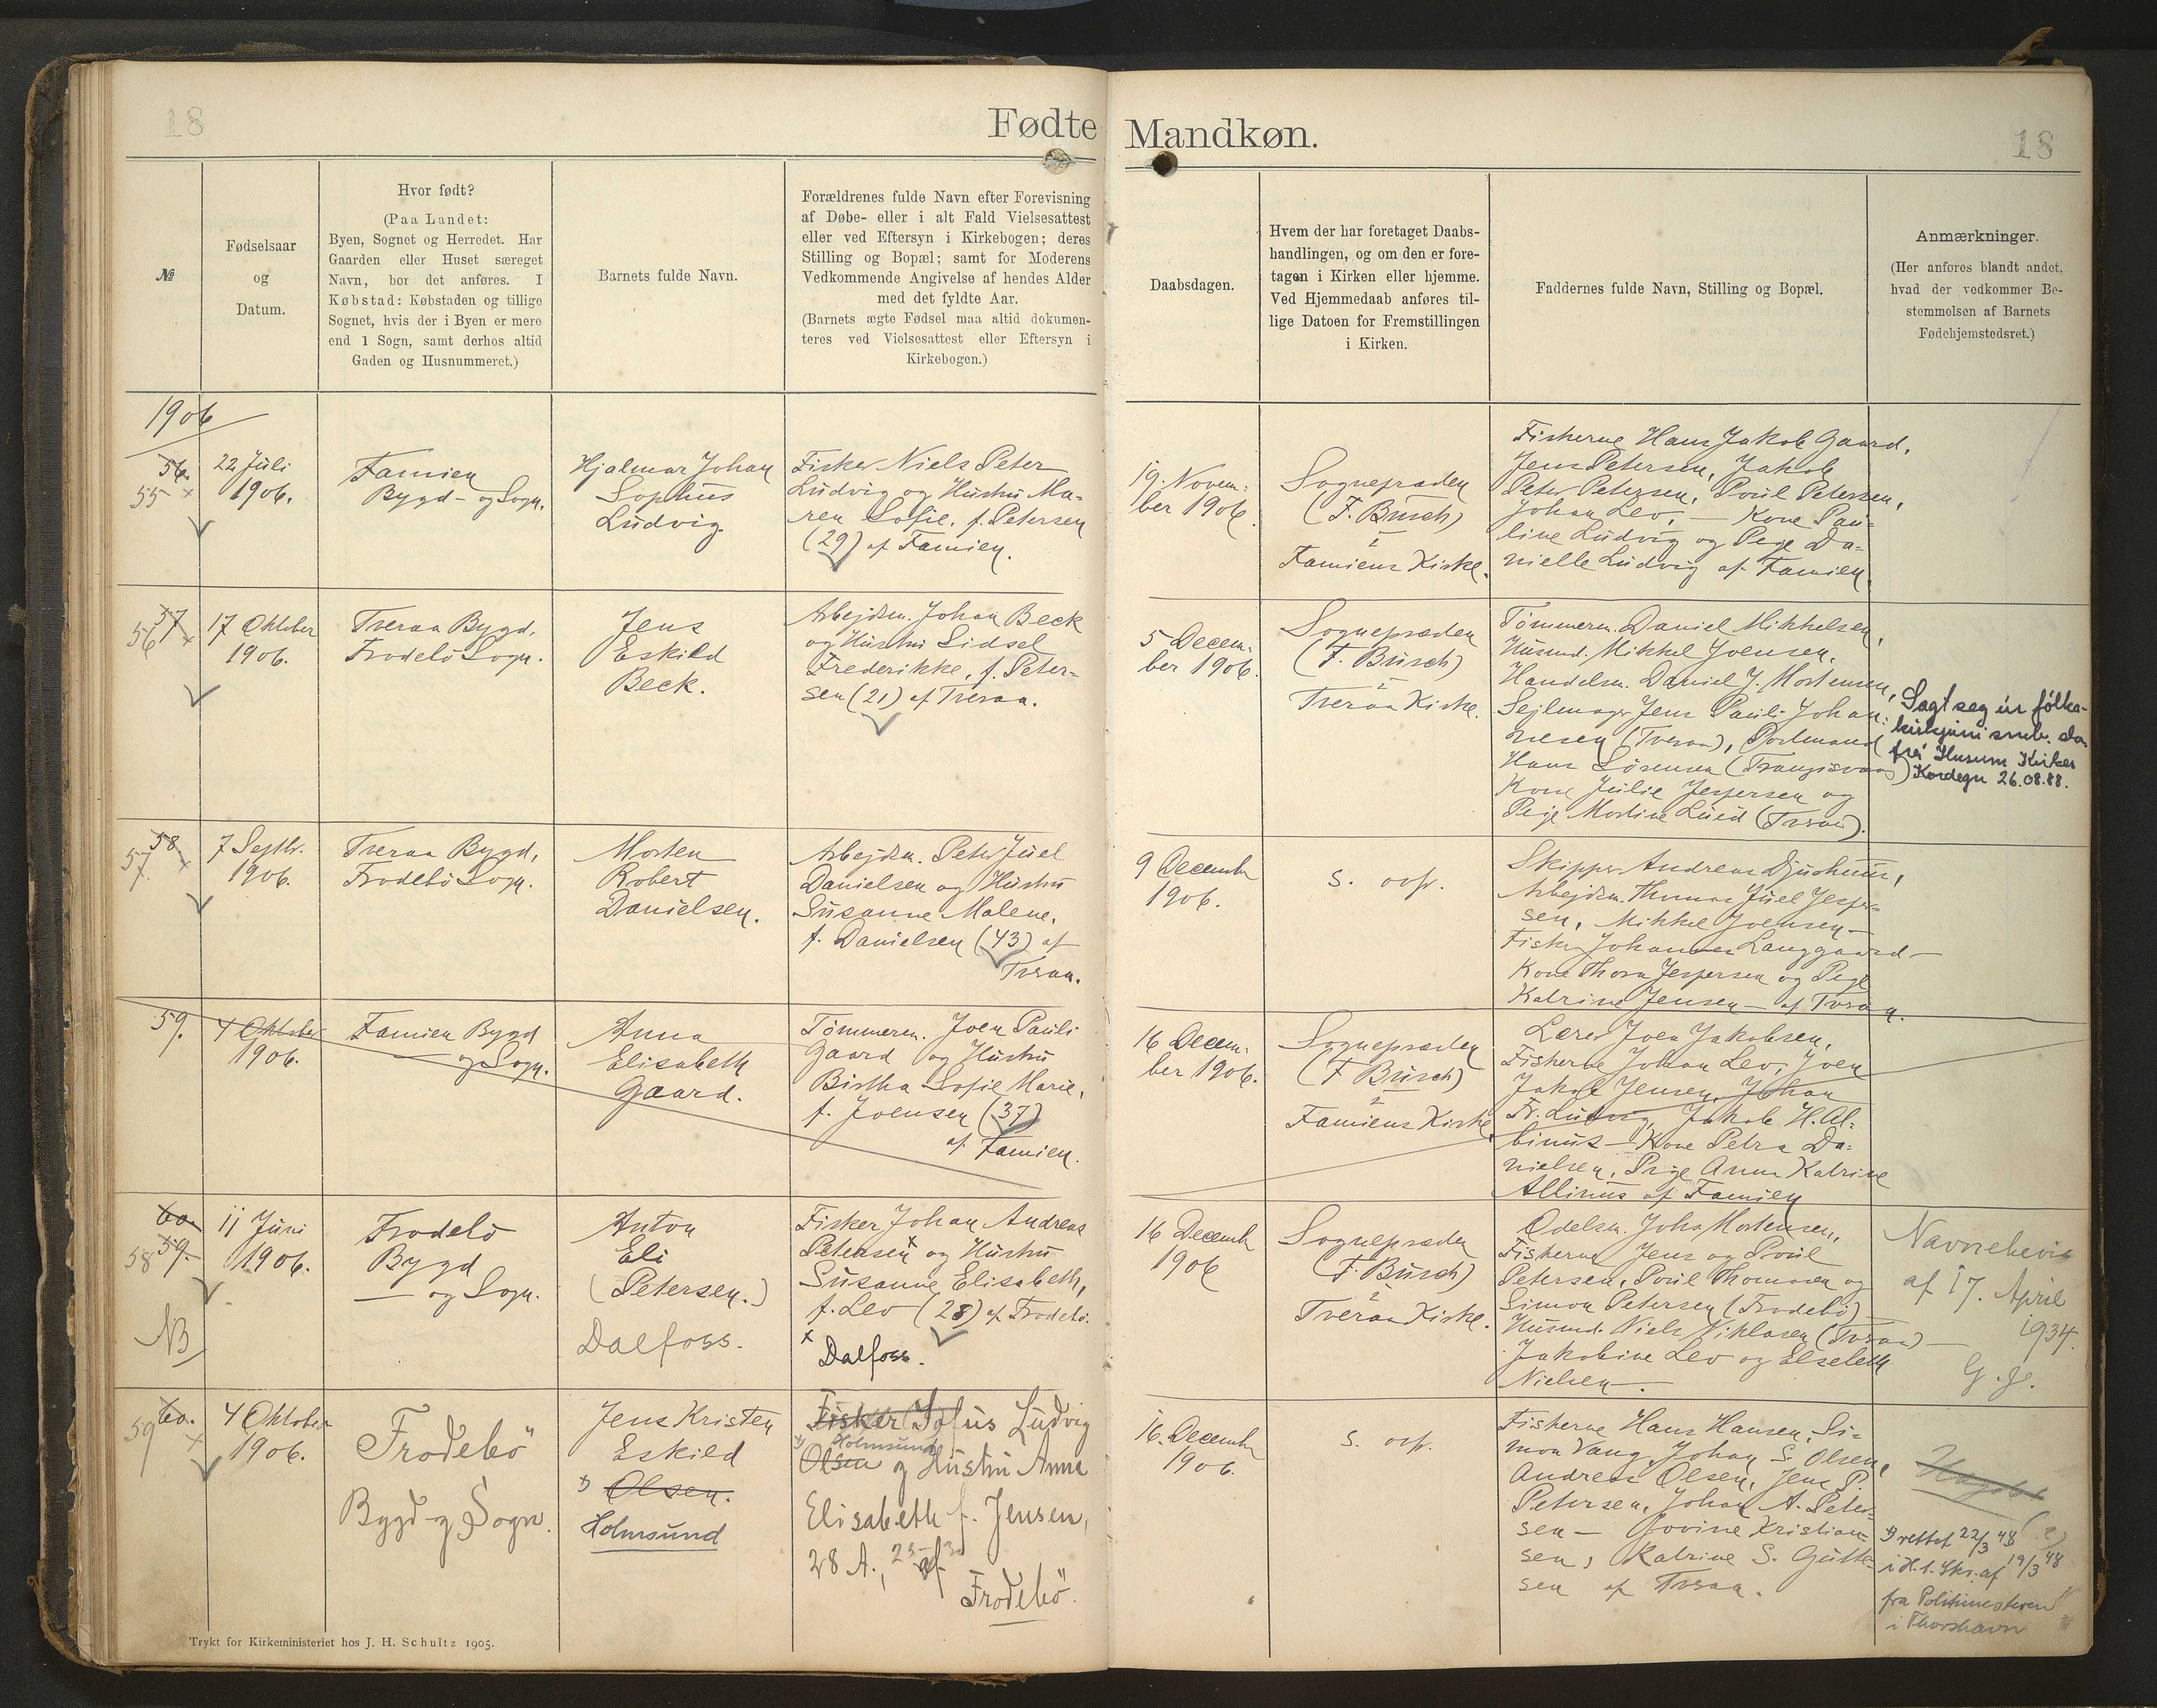 18
Fødte
Mandkøn.
18
№
Fødselsaar
og
Datum.
Hvor født?
(Paa Landet:
Byen, Sognet og Herredet. Har
Gaarden eller Huset særeget
Navn, bør det anføres. I
Købstad: Købstaden og tillige
Sognet, hvis der i Byen er mere
end 1 Sogn, samt derhos altid
Gaden og Husnummeret.)
Barnets fulde Navn.
Forældrenes fulde Navn efter Forevisning
af Døbe- eller i alt Fald Vielsesattest
eller ved Eftersyn i Kirkebogen; deres
Stilling og Bopæl; samt for Moderens
Vedkommende Angivelse af hendes Alder
med det fyldte Aar.
(Barnets ægte Fødsel maa altid dokumen-
teres ved Vielsesattest eller Eftersyn i
Kirkebogen.)
Daabsdagen.
Hvem der har foretaget Daabs-
handlingen, og om den er fore-
tagen i Kirken eller hjemme.
Ved Hjemmedaab anføres til-
lige Datoen for Fremstillingen
i Kirken.
Faddernes fulde Navn, Stilling og Bopæl.
Anmærkninger.
(Her anføres blandt andet,
hvad der vedkommer Be-
stemmelsen af Barnets
Fødehjemstedsret.)
1906
56.
55 x
22 Juli
1906.
Famien
Bygd- og Sogn.
Hjalmar Johan
Sophus
Ludvig
Fisker Niels Peter
Ludvig og Hustru Ma-
ren Sofie, f. Petersen
(29) af Famien.
19. Novem-
ber 1906.
Sognepræsten
(F. Busch)
i
Famiens Kirke.
Fiskerne Hans Jakob Gaard,
Jens Petersen, Jakob
Peter Petersen, Poul Petersen,
Johan Lev, — Kone Pau-
line Ludvig og Pige Da-
nielle Ludvig af Famien.
57
56 x
17 Oktober
1906.
Tveraa Bygd,
Frodebö Sogn.
Jens
Eskild
Beck.
Arbejdsm. Johan Beck
og Hustru Sidsel
Frederikke, f. Peter-
sen (21) af Tveraa.
5 Decem-
ber 1906.
Sognepræsten
(F. Busch)
i
Tveraa Kirke.
Tömmerm. Daniel Mikkelsen,
Husmd. Mikkel Joensen,
Handelsm. Daniel J. Mortensen,
Sejlmager Jens Pauli Johan-
nesen (Tveraa), Postmand
Hans Sörensen (Trangisvaag)
Kone Julie Jespersen og
Pige Mortine Lund (Tveraa).
Sagt seg úr fólka-
kirkjuni smb.
frá Husum Kirkes
Kordegn 26.08.88.
58
57. x
7 Septbr.
1906.
Tveraa Bygd,
Frodebö Sogn.
Morten
Robert
Danielsen.
Arbejdsm. Peter Juel
Danielsen og Hustru
Susanne Malene,
f. Danielsen (43) af
Tveraa.
9 December
1906.
s. ovf.
Skipper Andreas Djurhuus,
Arbejdsm. Thomas Juel Jesper-
sen, Mikkel Joensen —
Fisker Johannes Langgaard —
Kone Thora Jespersen og Pige
Katrine Jensen — af Tveraa.
59.
4 Oktober
1906.
Famien Bygd
og Sogn.
Anna
Elisabeth
Gaard.
Tömmerm. Joen Pauli
Gaard og Hustru
Birtha Sofie Marie,
f. Joensen (37)
af Famien.
16 Decem-
ber 1906.
Sognepræsten
(F. Busch)
i
Famiens Kirke
Lærer Joen Jakobsen,
Fiskerne Johan Lev, Joen
Jakob Jensen, Johan
Fr. Ludvig, Jakob H. Al-
binus — Kone Petra Da-
nielsen, Pige Anna Katrine
Albinus af Famien
60.
59.
58
11 Juni
1906.
NB
Frodebö
Bygd
— og Sogn.
Anton
Eli
(Petersen.)
Dalfoss.
Fisker Johan Andreas
Petersen x og Hustru
Susanne Elisabeth,
f. Lev (28) af Frodebö.
x
Dalfoss.
16 December
1906
Sognepræsten
(F. Busch)
i
Tveraa Kirke.
Odelsm. Johs Mortensen,
Fiskerne Jens og Poul
Petersen, Poul Thomasen og
Simon Petersen (Frodebö) —
Husmd. Niels Niklasen (Tveraa) —
Jakobine Lev og Elsebeth
Nielsen.
Navnebevis
af 17. April
1934.
60.
59 x
4 Oktober
1906.
Frodebö
Bygd og Sogn.
Jens Kristen
Eskild
Olsen.
Holmsund
Fisker Jofus Ludvig
Holmsund
Olsen og Hustru Anna
Elisabeth f. Jensen,
28 A., af
Frodebö.
16. December
1906.
s. ovf.
Fiskerne Hans Hansen, Si-
mon Vang, Johan S. Olsen,
Andreas Olsen, Jens P.
Petersen, Johan A. Peter-
sen — Jovine Kristian-
sen, Katrine S. Gutte-
sen af Tveraa.
rettet 22/3 48
i H. t. Skr. af 19/3 48
fra Politimesteren
i Thorshavn
Trykt for Kirkeministeriet hos J. H. Schultz 1905.